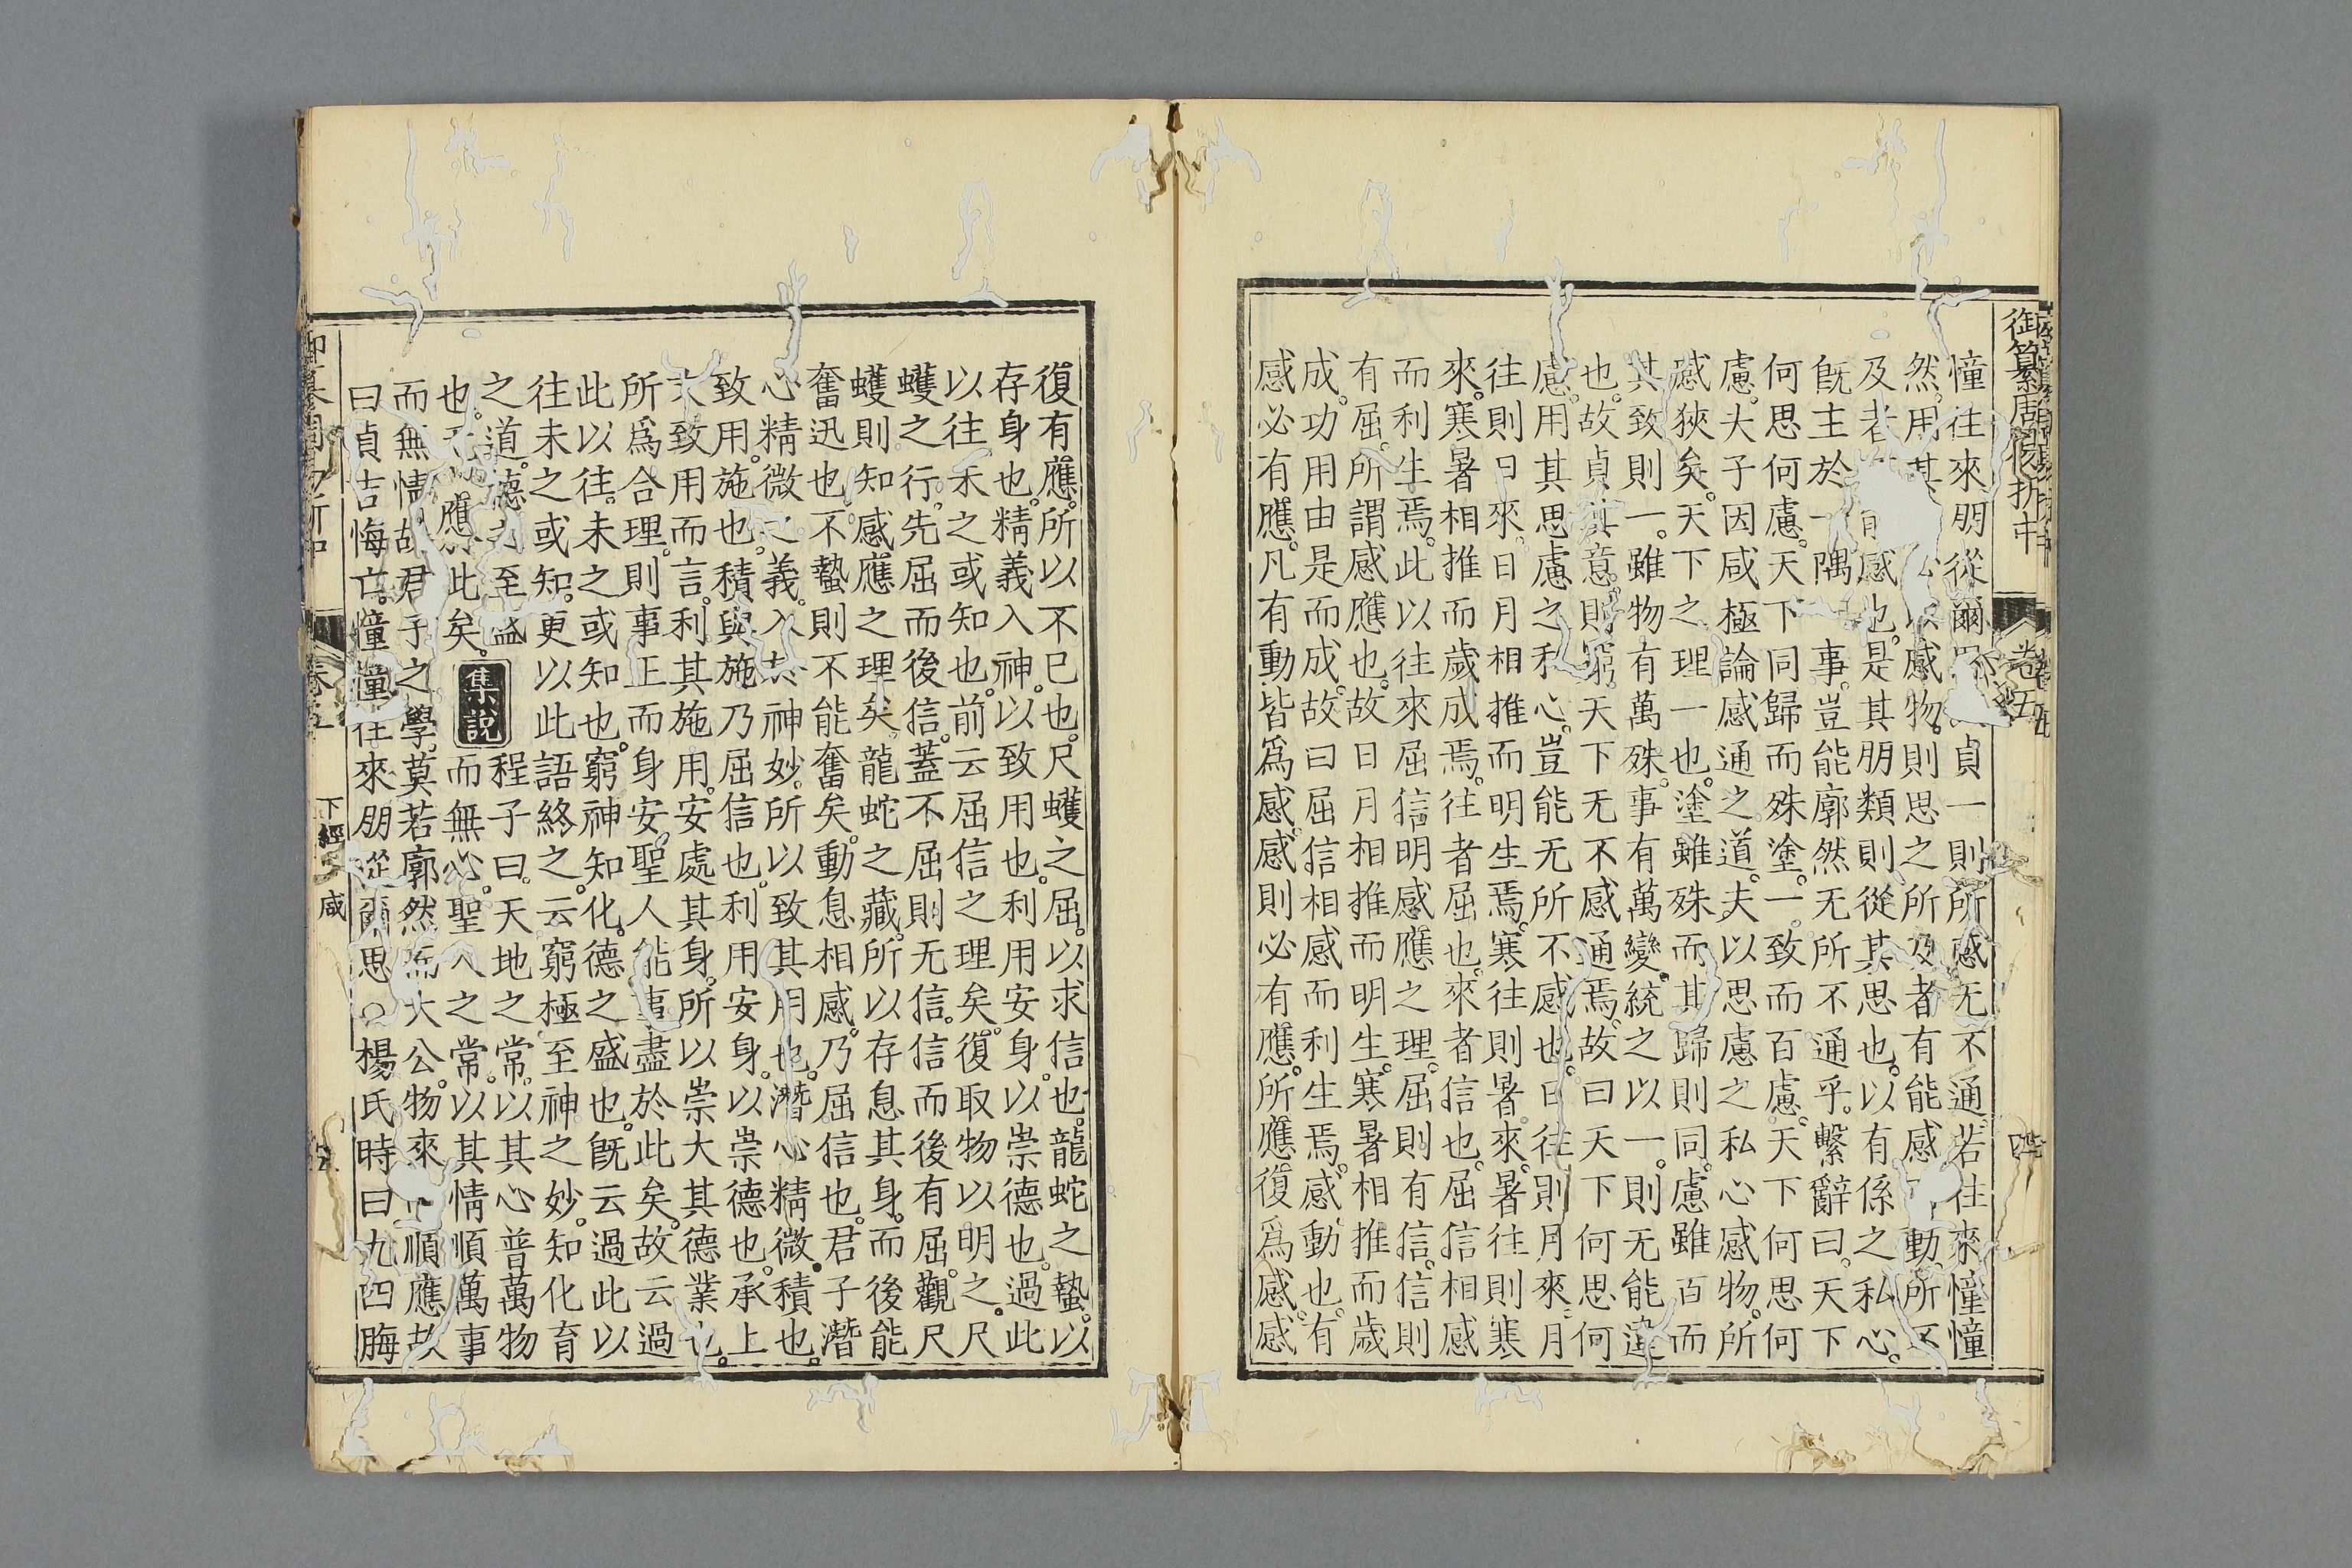 御纂周易折中 卷五
憧往來朋從爾 貞一則所感无不通。若往來憧憧
然。用其 以感物。則思之所及者有能感 動。所不
及者 能感也。是其朋類則從其思也。以有係之私心。
旣主於一隅 事。豈能廓然无所不通乎。繫辭曰。天下
何思何慮。天下同歸而殊塗。一致而百慮。天下何思何
慮。夫子因咸極論感通之道。夫以思慮之私心感物。所
感狹矣。天下之理一也。塗雖殊而其歸則同。慮雖百而
其致則一。雖物有萬殊。事有萬變。統之以一。則无能違
也。故貞其意。則窮天下无不感通焉。故曰天下何思何
慮。用其思慮之私心。豈能无所不感也。日往則月來。月
往則日來。日月相推而明生焉。寒往則暑來。暑往則寒
來。寒暑相推而歲成焉。往者屈也。來者信也。屈信相感
而利生焉。此以往來屈信明感應之理。屈則有信。信則
有屈。所謂感應也。故日月相推而明生。寒暑相推而歲
成。功用由是而成。故曰屈信相感而利生焉。感動也。有
感必有應。凡有動皆爲感。感則必有應。所應復爲感。感
復有應。所以不已也。尺蠖之屈。以求信也。龍蛇之蟄。以
存身也。精義入神。以致用也。利用安身。以崇德也。過此
以往。未之或知也。前云屈信之理矣。復取物以明之。尺
蠖之行。先屈而後信。蓋不屈則无信。信而後有屈。觀尺
蠖則知感應之理矣。龍蛇之藏。所以存息其身。而後能
奮迅也。不蟄則不能奮矣。動息相感。乃屈信也。君子潛
心精微之義。入於神妙。所以致其用也。潛心精微。積也。
致用。施也。積與施乃屈信也。利用安身。以崇德也。承上
文致用而言。利其施用。安處其身。所以崇大其德業也。
所爲合理。則事正而身安。聖人能事盡於此矣。故云過
此以往。未之或知也。窮神知化。德之盛也。旣云過此以
往未之或知。更以此語終之。云窮極至神之妙。知化育
之道。德之至盛 程子曰。天地之常。以其心普萬物
也。无 應於此矣。集說 而無心。聖人之常。以其情順萬事
而無情。故君子之學。莫若廓然而大公。物來 順應。故
曰貞吉悔亡。憧憧往來朋從爾思。○楊氏時曰九四脢
卷五 下經 咸